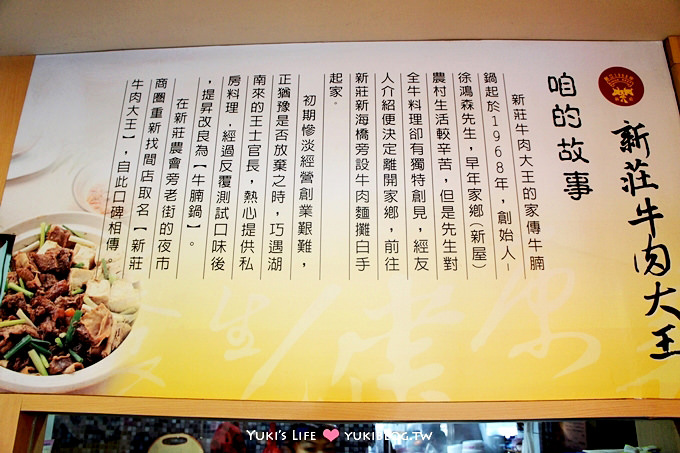 新莊牛肉大王
咱的故事
新莊牛肉大王的家傳牛腩
鍋起於1968年,創始人–
徐鴻森先生,早年家鄉(新屋)
農村生活較辛苦,但是先生對
全牛料理卻有獨特創見,經友
人介紹便決定離開家鄉,前往
新莊新海橋旁設牛肉麵攤白手
起家。
初期慘淡經營創業艱難,
正猶豫是否放棄之時,巧遇湖
南來的王士官長,熱心提供私
房料理,經過反覆測試口味後
,提昇改良為【牛腩鍋】。
在新莊農會旁老街的夜市
商圈重新找間店取名【新莊
牛肉大王】,自此口碑相傳。
YUKI'S LIFE ♥ YUKIBLOG.TW